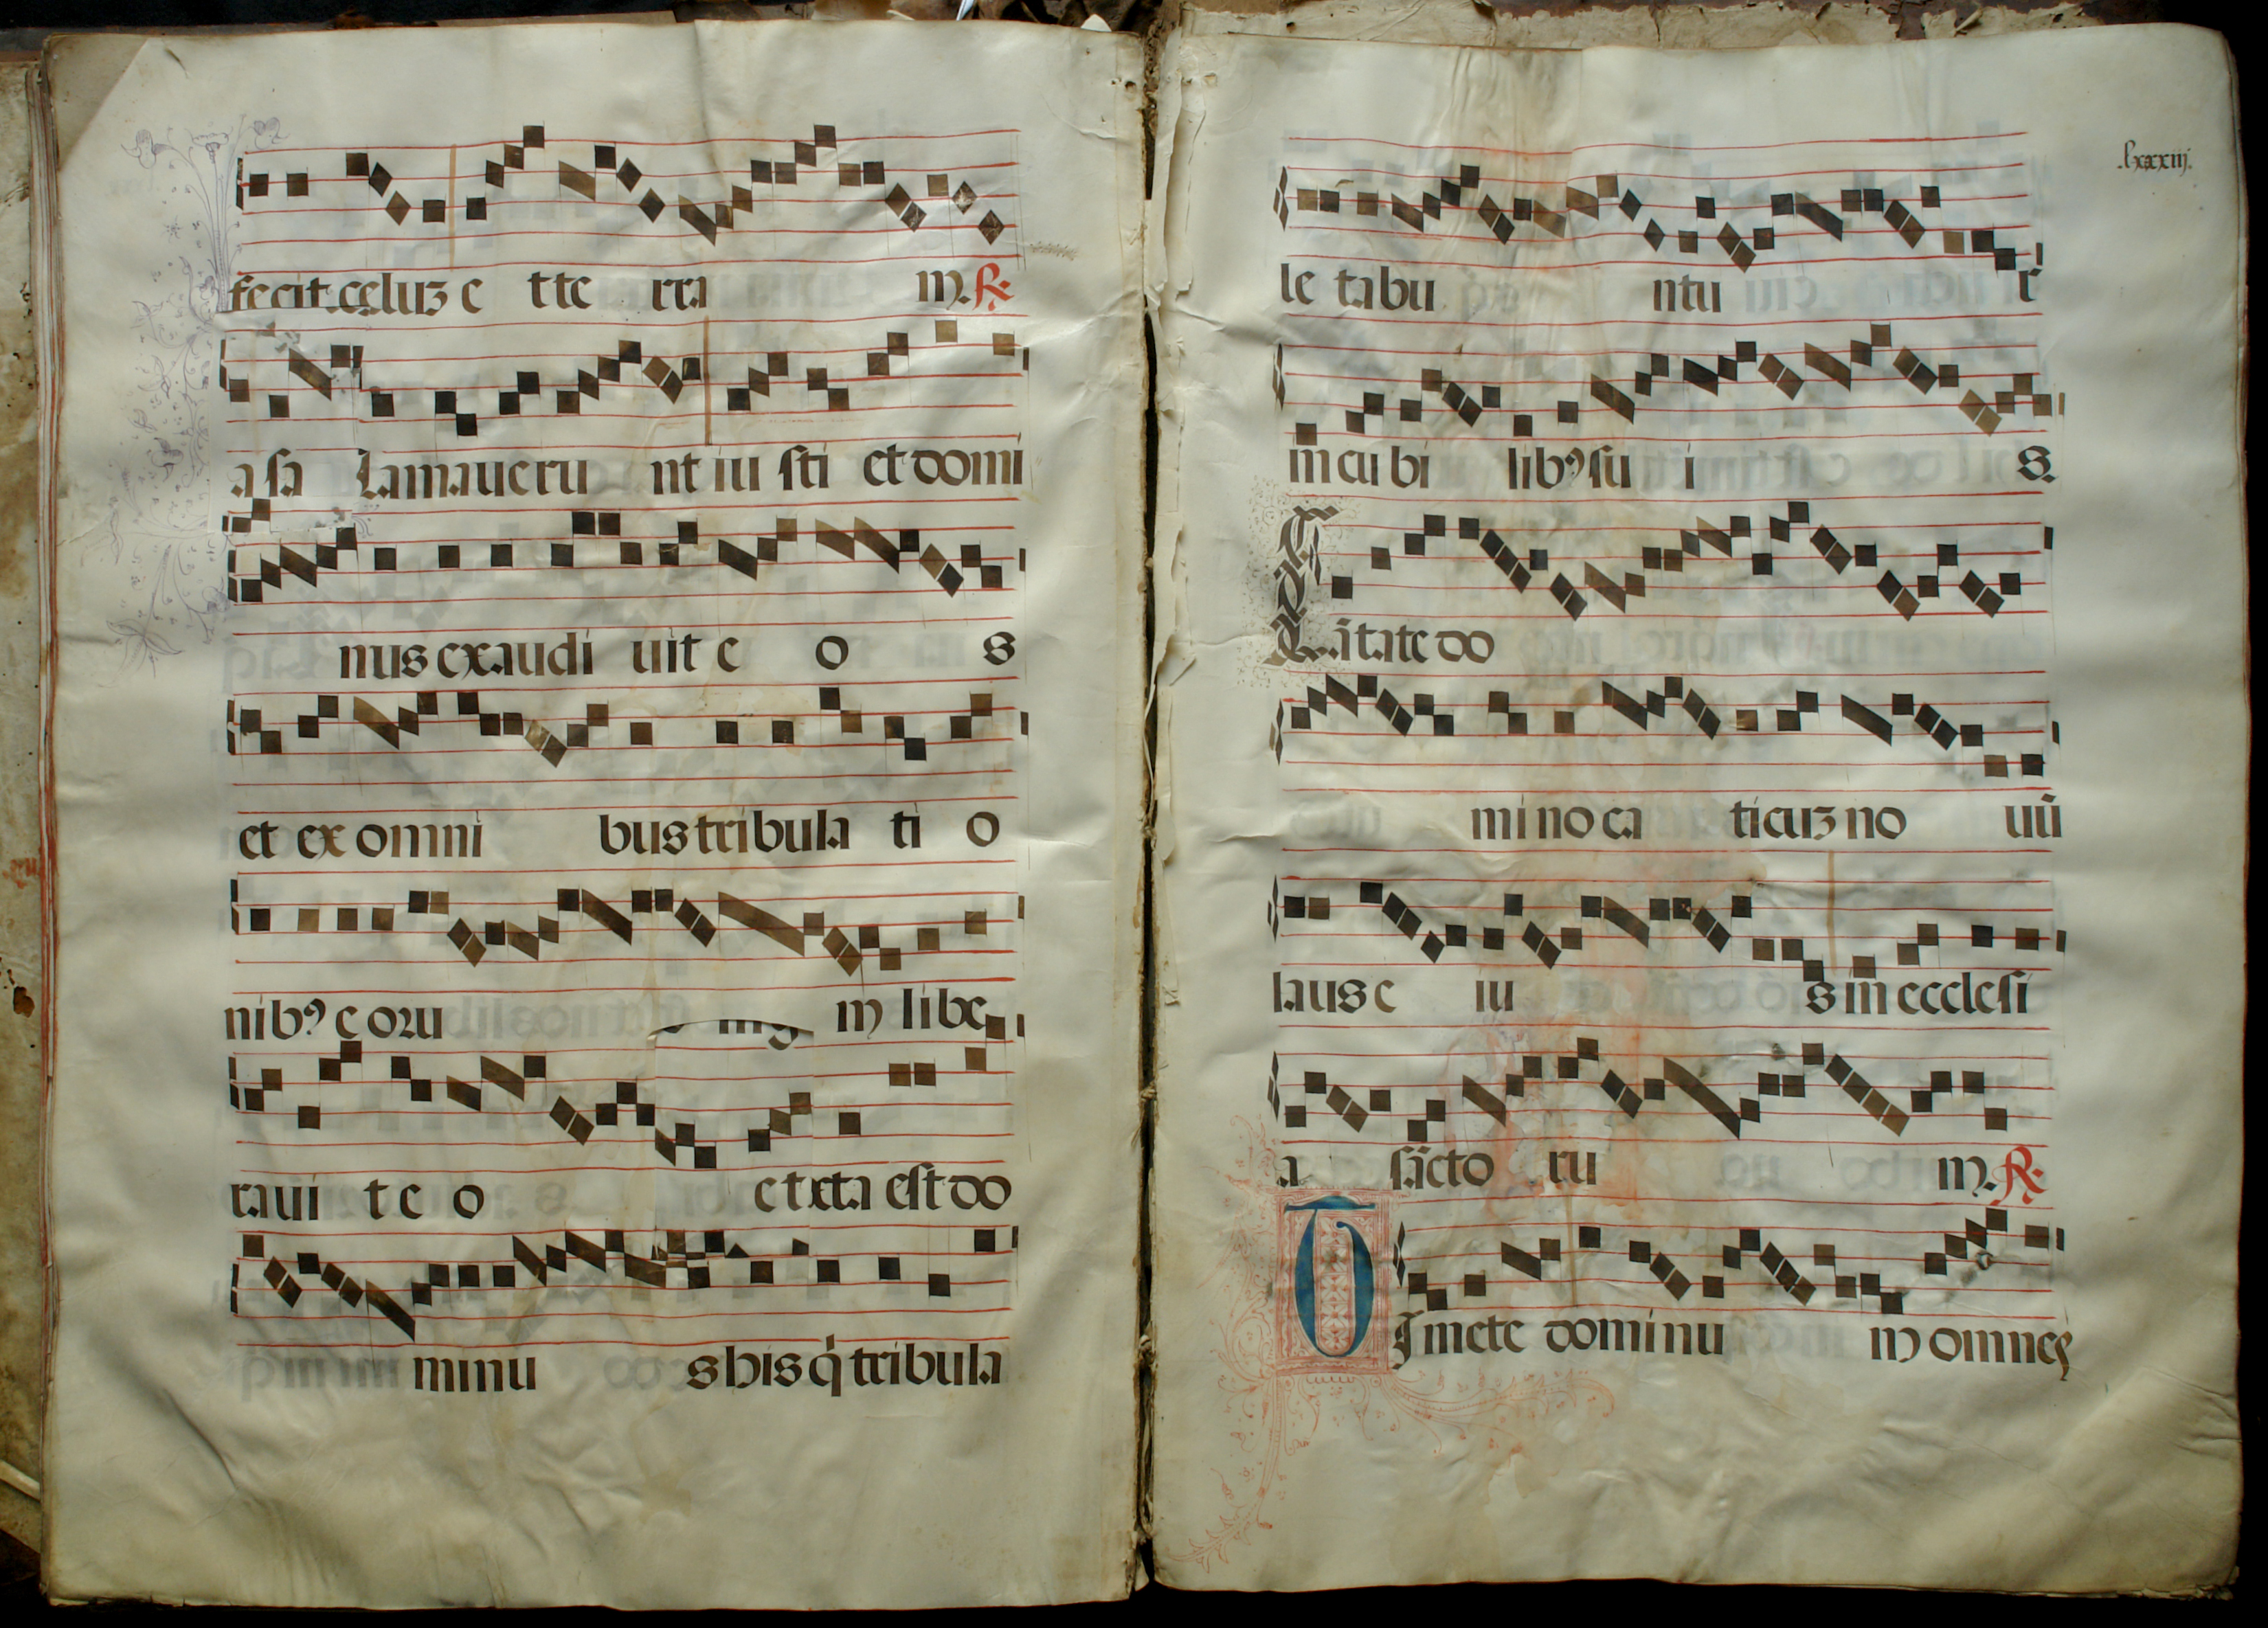 fecit celuʒ e tte rra m. ℟.
a sa lamaueru nt iu sti et domi
nus exaudi uit e o s
et ex omni bus tribula ti o
nibꝰ eoꝛu m libe
raui t e o et xta est do
minu s his q̇ tribula
lxxxiij.
le tabu ntu r
in cu bi libꝰ su i s.
Cātate do
mi no ca ticuʒ no uū
laus e iu s in ecclesi
a sācto ru m. ℟.
Timete dominu m omnes